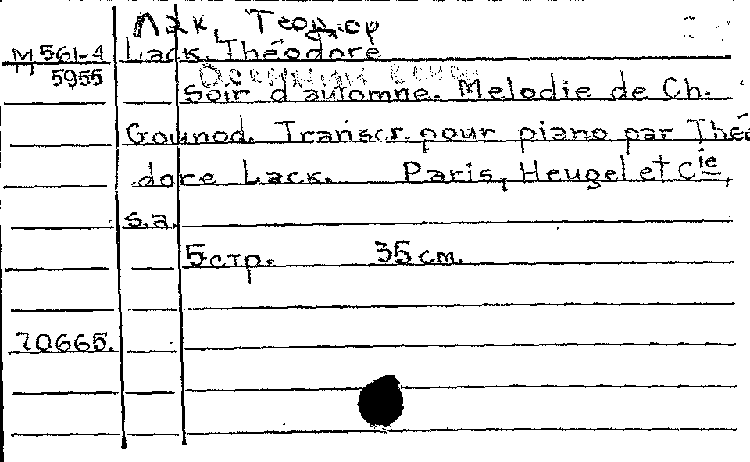 Лак, Теодор
М 561-1 Lack, Théodore
5955
Осенний вечер
Soir d'automne. Melodie de Ch.
Gounod. Transcr. pour piano par Théo
dore Lack. Paris, Heugel et Cie,
s.a.
5 стр. 35 cm.
70665.